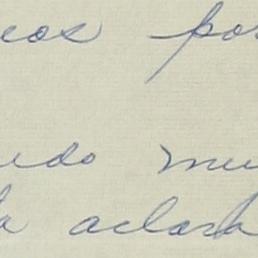 eos por
uedo mu
la aclara